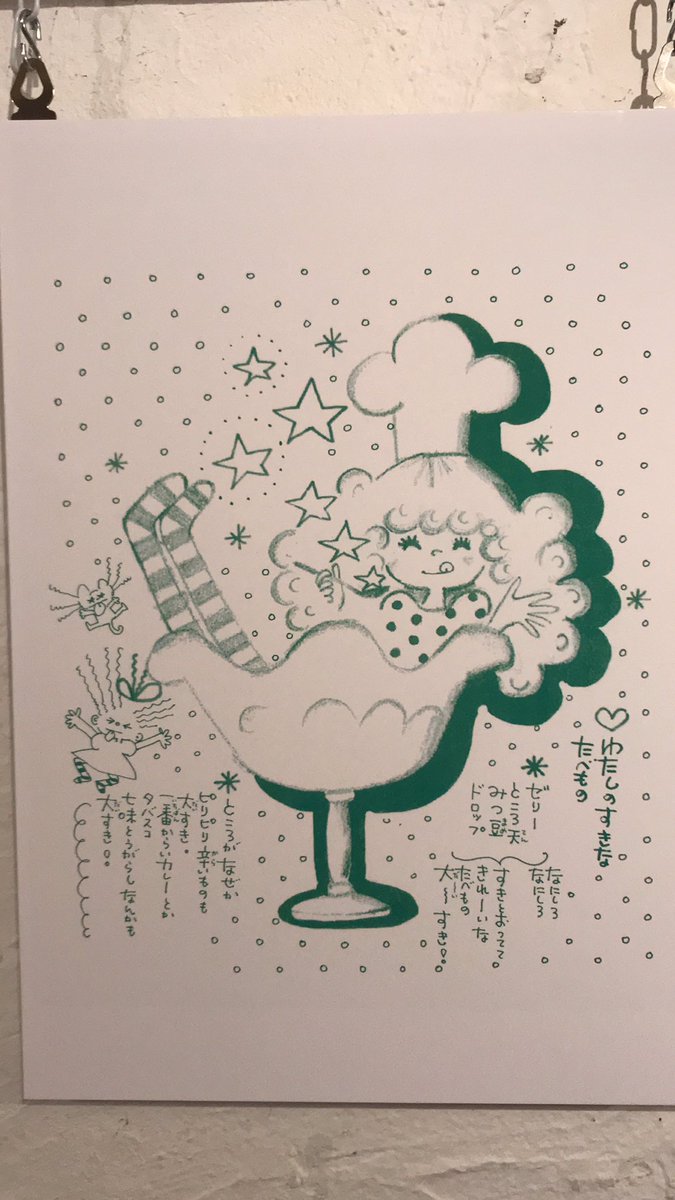 ♡わたしのすきな
たべもの
＊ゼリー
ところ天
みつ豆
ドロップ
なにしろ
なにしろ
すきとおってて
きれーいな
たべもの
大〜すき。
＊ところがなぜか
ピリピリ辛いものも
大すき。
一番からいカレーとか
タバスコ
七味とうがらしなんかも
大すき。